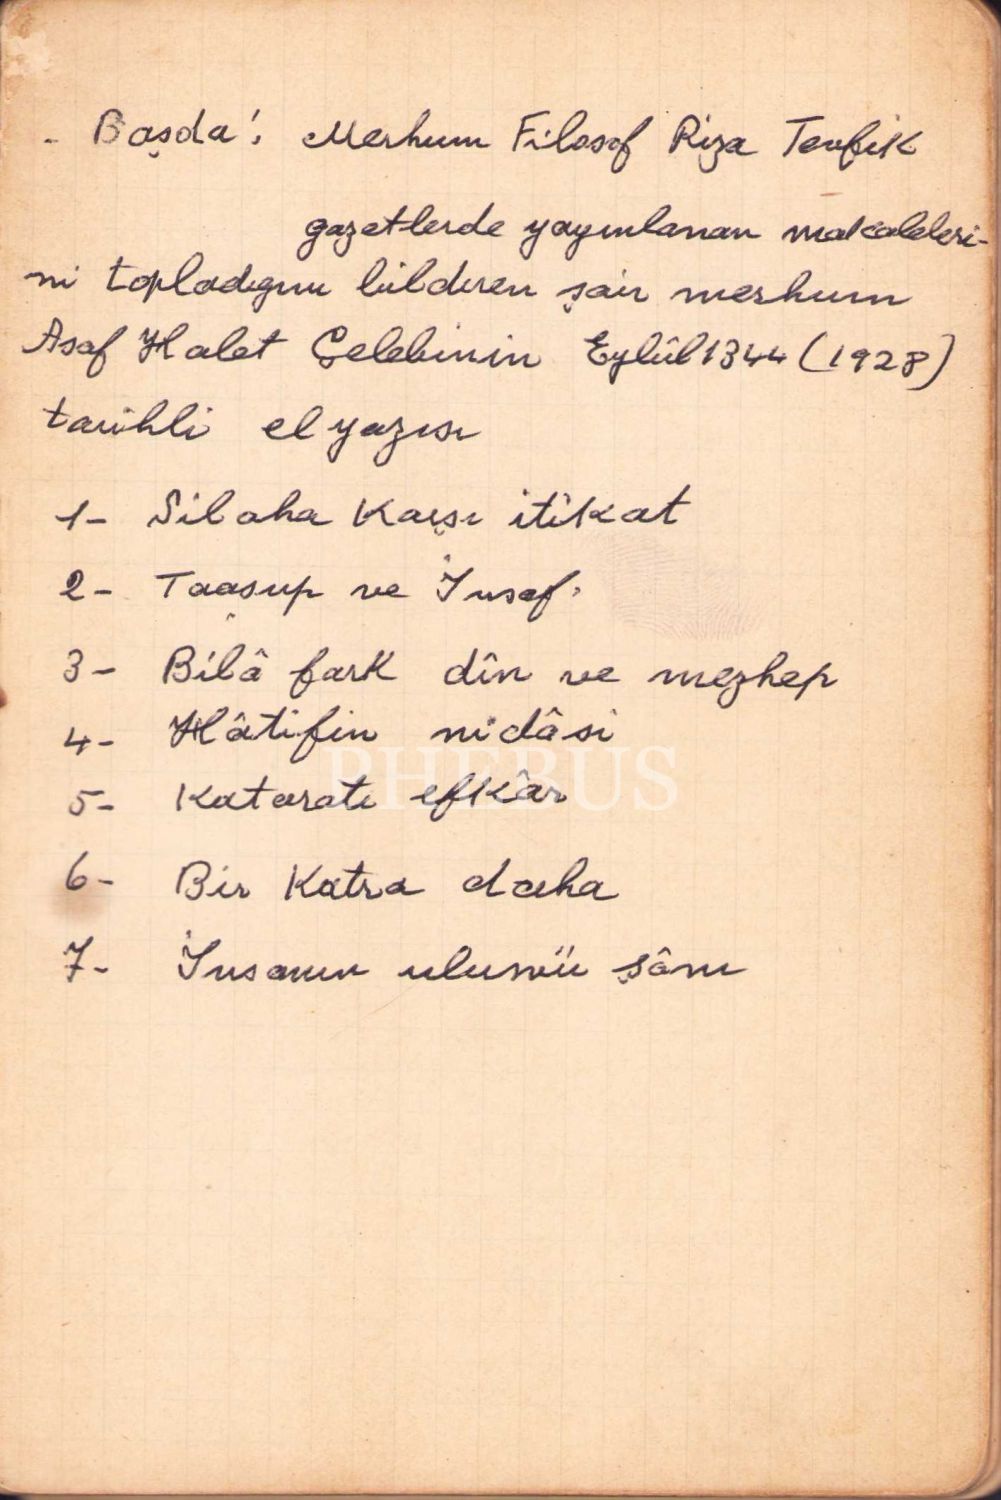 - Başda: Merhum Filosof Riza Tevfik
gazetlerde yayınlanan makaleleri-
ni topladığını bildiren şair merhum
Asaf Halet Çelebinin Eylûl 1344 (1928)
tarihli el yazısı
1- Silaha Karşı itikat
2- Taasup ve İnsaf.
3- Bilâ fark dîn ve mezhep
4- Hâtifin nidâsi
PHEBUS
5- Kataratı efkâr
6- Bir Katra daha
7- İnsanın ulunvü şânı